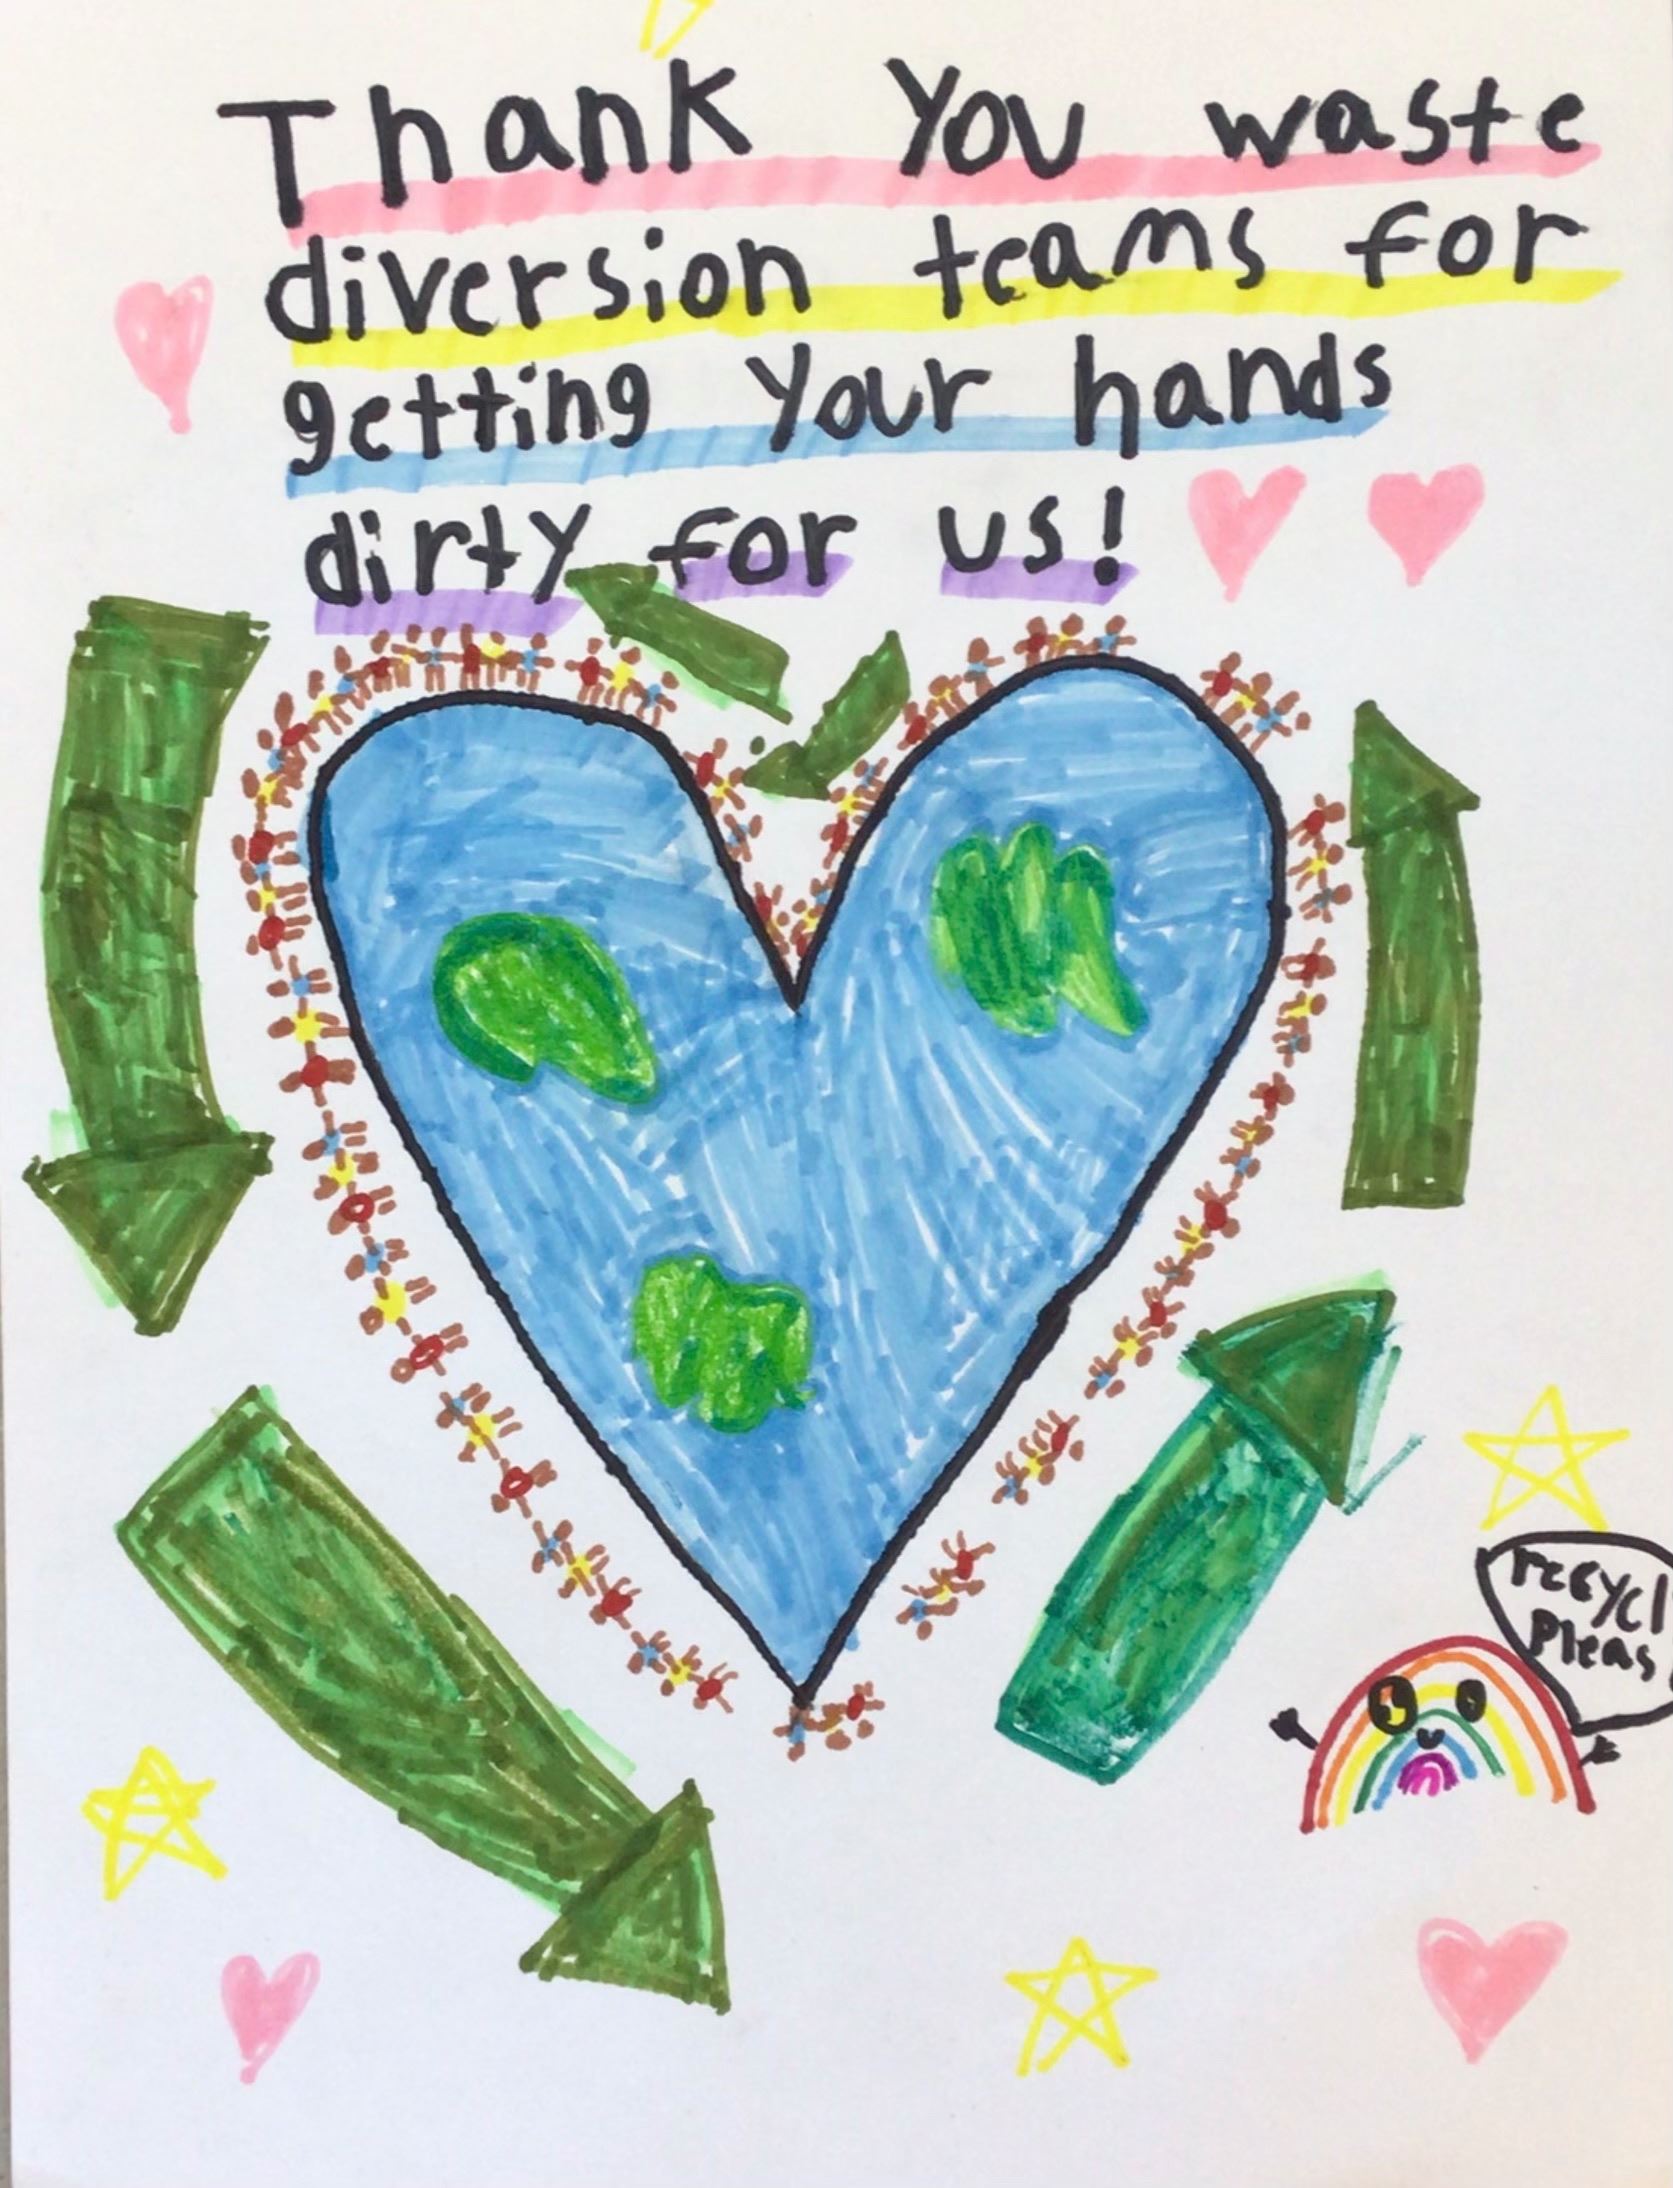 Thank You waste
diversion teams for
getting your hands
dirty for us!
recycl
pleas